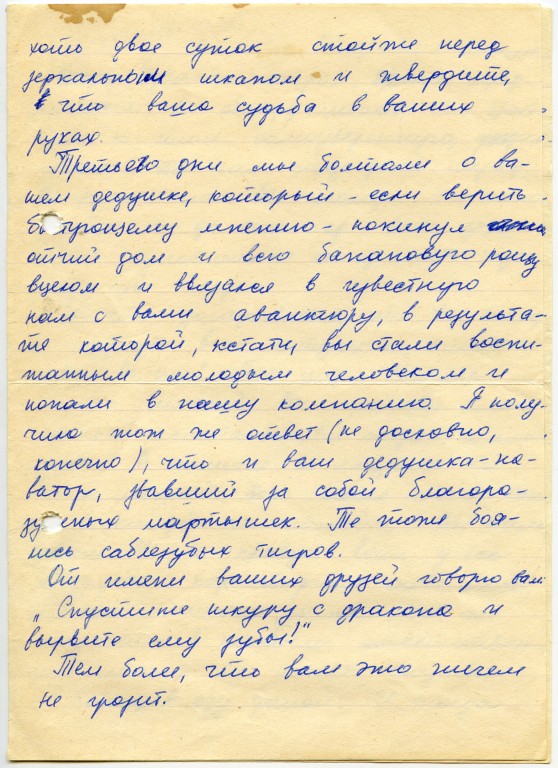 хоть двое суток стойте перед
зеркальным шкапом и твердите,
что ваша судьба в ваших
руках.
Третьего дни мы болтали о ва-
шем дедушке, который - если верить
бытующему мнению - покинул
отчий дом и всю банановую рощу
вцелом и ввязался в известную
нам с вами авантюру, в результа-
те которой, кстати, вы стали воспи-
танным молодым человеком и
попали в нашу компанию. Я полу-
чила тот же ответ (не дословно,
конечно), что и ваш дедушка-но-
ватор, звавший за собой благора-
зумных мартышек. Те тоже боя-
лись саблезубых тигров.
От имени ваших друзей говорю вам:
„Спустите шкуру с дракона и
вырвите ему зубы!"
Тем боле, что вам это ничем
не грозит.